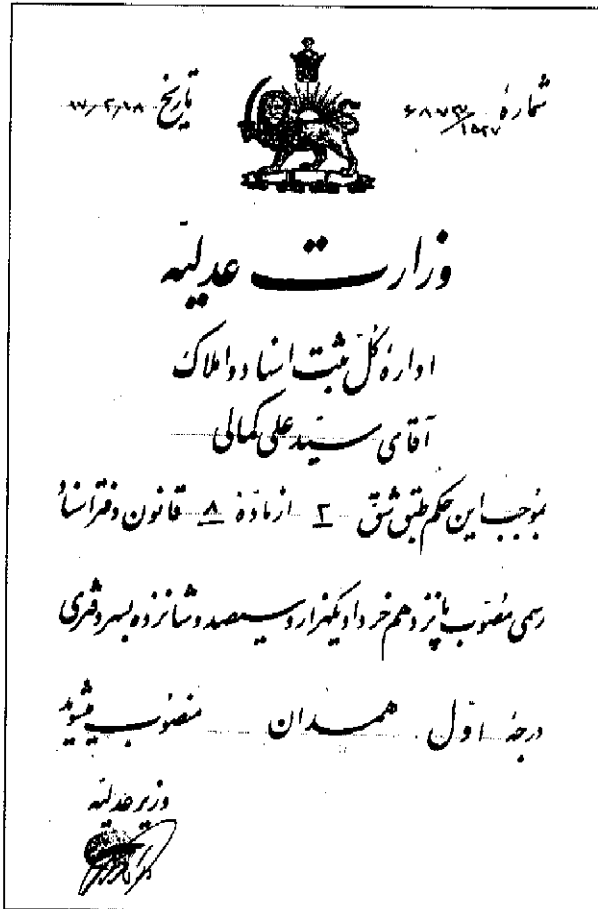 شمارهٔ ۶۸۷۳۷/۱۵۲۷
تاریخ ۱۷/۲/۱۸
وزارت عدلیّه
ادارهٔ کلّ ثبت اسناد و املاک
آقای سیّد علی کمالی
بموجب این حکم طبق شق ۲ از مادّهٔ ۸ قانون دفتر اسناد
رسمی مصوّب پانزدهم خرداد یکهزار و سیصد و شانزده بسر دفتری
درجهٔ اوّل همدان منصوب میشوید
وزیر عدلیّه